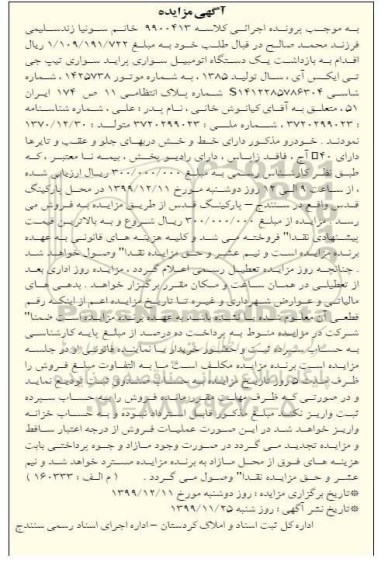 آگهی مزایده
به موجب پرونده اجرائی کلاسه ۹۹۰۰۴۱۳ خانم سونیا زندسلیمی
فرزند محمد صالح در قبال طلب خود به مبلغ ۱/۱۰۹/۱۹۱/۷۲۲ ریال
اقدام به بازداشت یک دستگاه اتومبیل سواری براید سواری تیپ جی
تی ایکس آی ، سال تولید ۱۳۸۵ ، به شماره موتور ۱۴۲۵۷۳۸ ، شماره
شاسی S۱۴۱۲۲۸۵۷۸۶۳۰۴ شماره پلاک انتظامی ۱۱ ص ۱۷۴ ایران
۵۱، متعلق به آقای کیانوش خانی ، نام پدر : علی ، شماره شناسنامه
: ۳۷۲۰۲۹۹۰۲۳ ، شماره ملی : ۳۷۲۰۲۹۹۰۲۳ متولد : ۱۳۷۰/۱۲/۳۰
نمودند . خودرو مذکور دارای خط و خش دربهای جلو و عقب و تایرها
دارای ۴۰% آج ، فاقد زاپاس ، دارای رادیو پخش ، بیمه نا معتبر ، که
طبق نظر کارشناس رسمی به مبلغ ۳۰۰/۰۰۰/۰۰۰ ریال ارزیابی شده
، از ساعت ۹ الی ۱۲ روز دوشنبه مورخ ۱۳۹۹/۱۲/۱۱ در محل پارکینگ
قدس واقع در سنندج – پارکینگ قدس از طریق مزایده به فروش می
رسد . مزایده از مبلغ ۳۰۰/۰۰۰/۰۰۰ ریال شروع و به بالاترین قیمت
پیشنهادی نقدا" فروخته می شد و کلیه هزینه های قانونی به عهده
برنده مزایده است و نیم عشر و حق مزایده نقدا" وصول خواهد شد
. چنانچه روز مزایده تعطیل رسمی اعلام گردد ، مزایده روز اداری بعد
از تعطیلی در همان ساعت و مکان مقرر برگزار خواهد . بدهی های
مالیاتی و عوارض شهرداری و غیره تا تاریخ مزایده اعم از اینکه رقم
قطعی آن معلوم شده یا نشده باشد به عهده برنده مزایده است ضمنا"
شرکت در مزایده منوط به پرداخت ده درصد از مبلغ پایه کارشناسی
به حساب سپرده ثبت و حضور خریدار یا نماینده قانونی او در جلسه
مزایده است برنده مزایده مکلف است ما به التفاوت مبلغ فروش را
ظرف مدت از تاریخ مزایده به حساب صندوق ثبت تودیع نماید
و در صورتی که ظرف مهلت مقرر مانده فروش را به حساب سپرده
ثبت واریز نکند مبلغ مذکور قابل استرداد نبوده و به حساب خزانه
واریز خواهد شد در این صورت عملیات فروش از درجه اعتبار ساقط
و مزایده تجدید می گردد در صورت وجود مازاد و جوه پرداختی بابت
هزینه های فوق از محل مازاد به برنده مزایده مسترد خواهد شد و نیم
عشر و حق مزایده نقدا" وصول می گردد . ( م الف : ۱۶۰۳۳۳ )
*تاریخ برگزاری مزایده : روز دوشنبه مورخ ۱۳۹۹/۱۲/۱۱
*تاریخ نشر آگهی : روز شنبه ۱۳۹۹/۱۱/۲۵
اداره کل ثبت اسناد و املاک کردستان – اداره اجرای اسناد رسمی سنندج